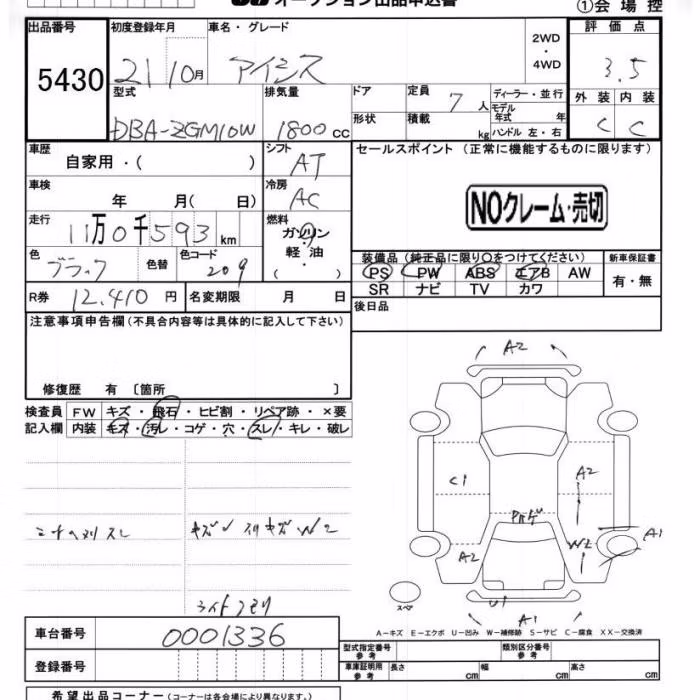 オークション出品申込書
①会場控
出品番号 初度登録年月 車名・グレード 2WD ・ 4WD 評価点
5430 21 10月 アイシス 3.5
型式 排気量 ドア 定員 7人 ディーラー・並行 外装 内装
DBA-ZGM10W 1800cc 形状 積載 kg モデル年式 年 ハンドル 左・右 C C
車歴 シフト セールスポイント (正常に機能するものに限ります)
自家用・( ) AT
車検 冷房
年 月( 日) AC NOクレーム・売切
走行 燃料
11万0千593km ガソリン・軽油・( )
色 色替 色コード 装備品 (純正品に限り○をつけてください) 新車保証書
ブラック 209 PS PW ABS エアB AW 有・無
SR ナビ TV カワ
R券 12,410円 名変期限 月 日 後日品
注意事項申告欄 (不具合内容等は具体的に記入して下さい)
修復歴 有 〔箇所 〕
検査員 FW キズ・飛石・ヒビ割・リペア跡・×要
記入欄 内装 キズ・汚レ・コゲ・穴・スレ・キレ・破レ
A2
C1 A2
A2 W2 A1
キズ スリキズ W2
ライトクモリ
U1 A1
スペア
A－キズ E－エクボ U－凹み W－補修跡 S－サビ C－腐食 XX－交換済
車台番号 0001336
型式指定番号 参考 類別区分番号 参考
登録番号 車庫証明用 参考 長さ cm 幅 cm 高さ cm
希望出品コーナー (コーナーは各会場により異なります。)